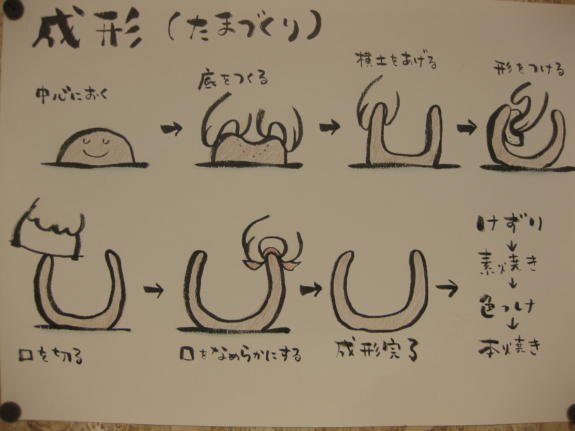 成形(たまづくり)
中心におく
底をつくる
横土をあげる
形をつける
口を切る
口をなめらかにする
成形完了
けずり
素焼き
色つけ
本焼き